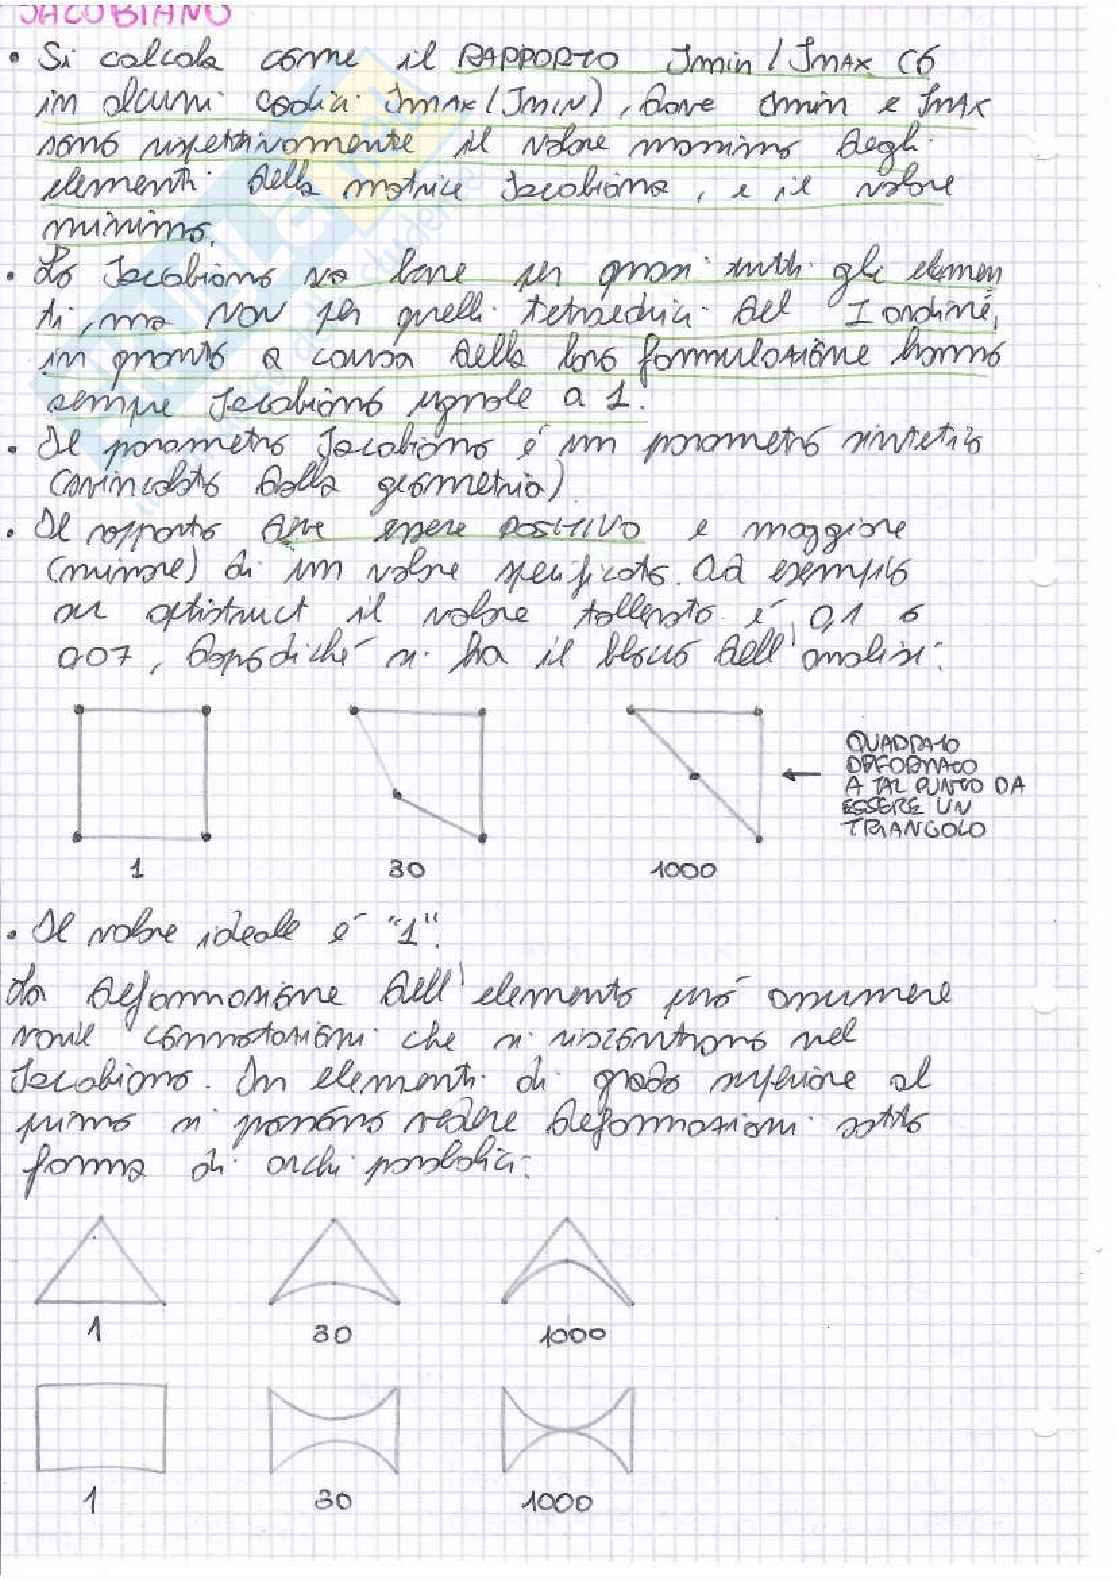 JACOBIANO
• Si calcola come il RAPPORTO Jmin / JMAX (o
in alcuni codici JMAX / JMIN), dove Jmin e JMAX
sono rispettivamente il valore massimo degli
elementi della matrice Jacobiana, e il valore
minimo.
• Lo Jacobiano va bene per quasi tutti gli elemen
ti, ma NON per quelli tetraedrici del I ordine,
in quanto a causa della loro formulazione hanno
sempre Jacobiano uguale a 1.
• Il parametro Jacobiano é un parametro sintetico
(svincolato dalla geometria)
• Il rapporto deve essere POSITIVO e maggiore
(minore) di un valore specificato. Ad esempio
su optistruct il valore tollerato é 0,1 o
0.07, dopodiché si ha il blocco dell'analisi:
QUADRATO
DEFORMATO
A TAL PUNTO DA
ESSERE UN
TRIANGOLO
1 30 1000
• Il valore ideale é "1".
La deformazione dell'elemento può assumere
varie connotazioni che si riscontrano nel
Jacobiano. In elementi di grado superiore al
primo si possono vedere deformazioni sotto
forma di archi parabolici:
1 30 1000
1 30 1000